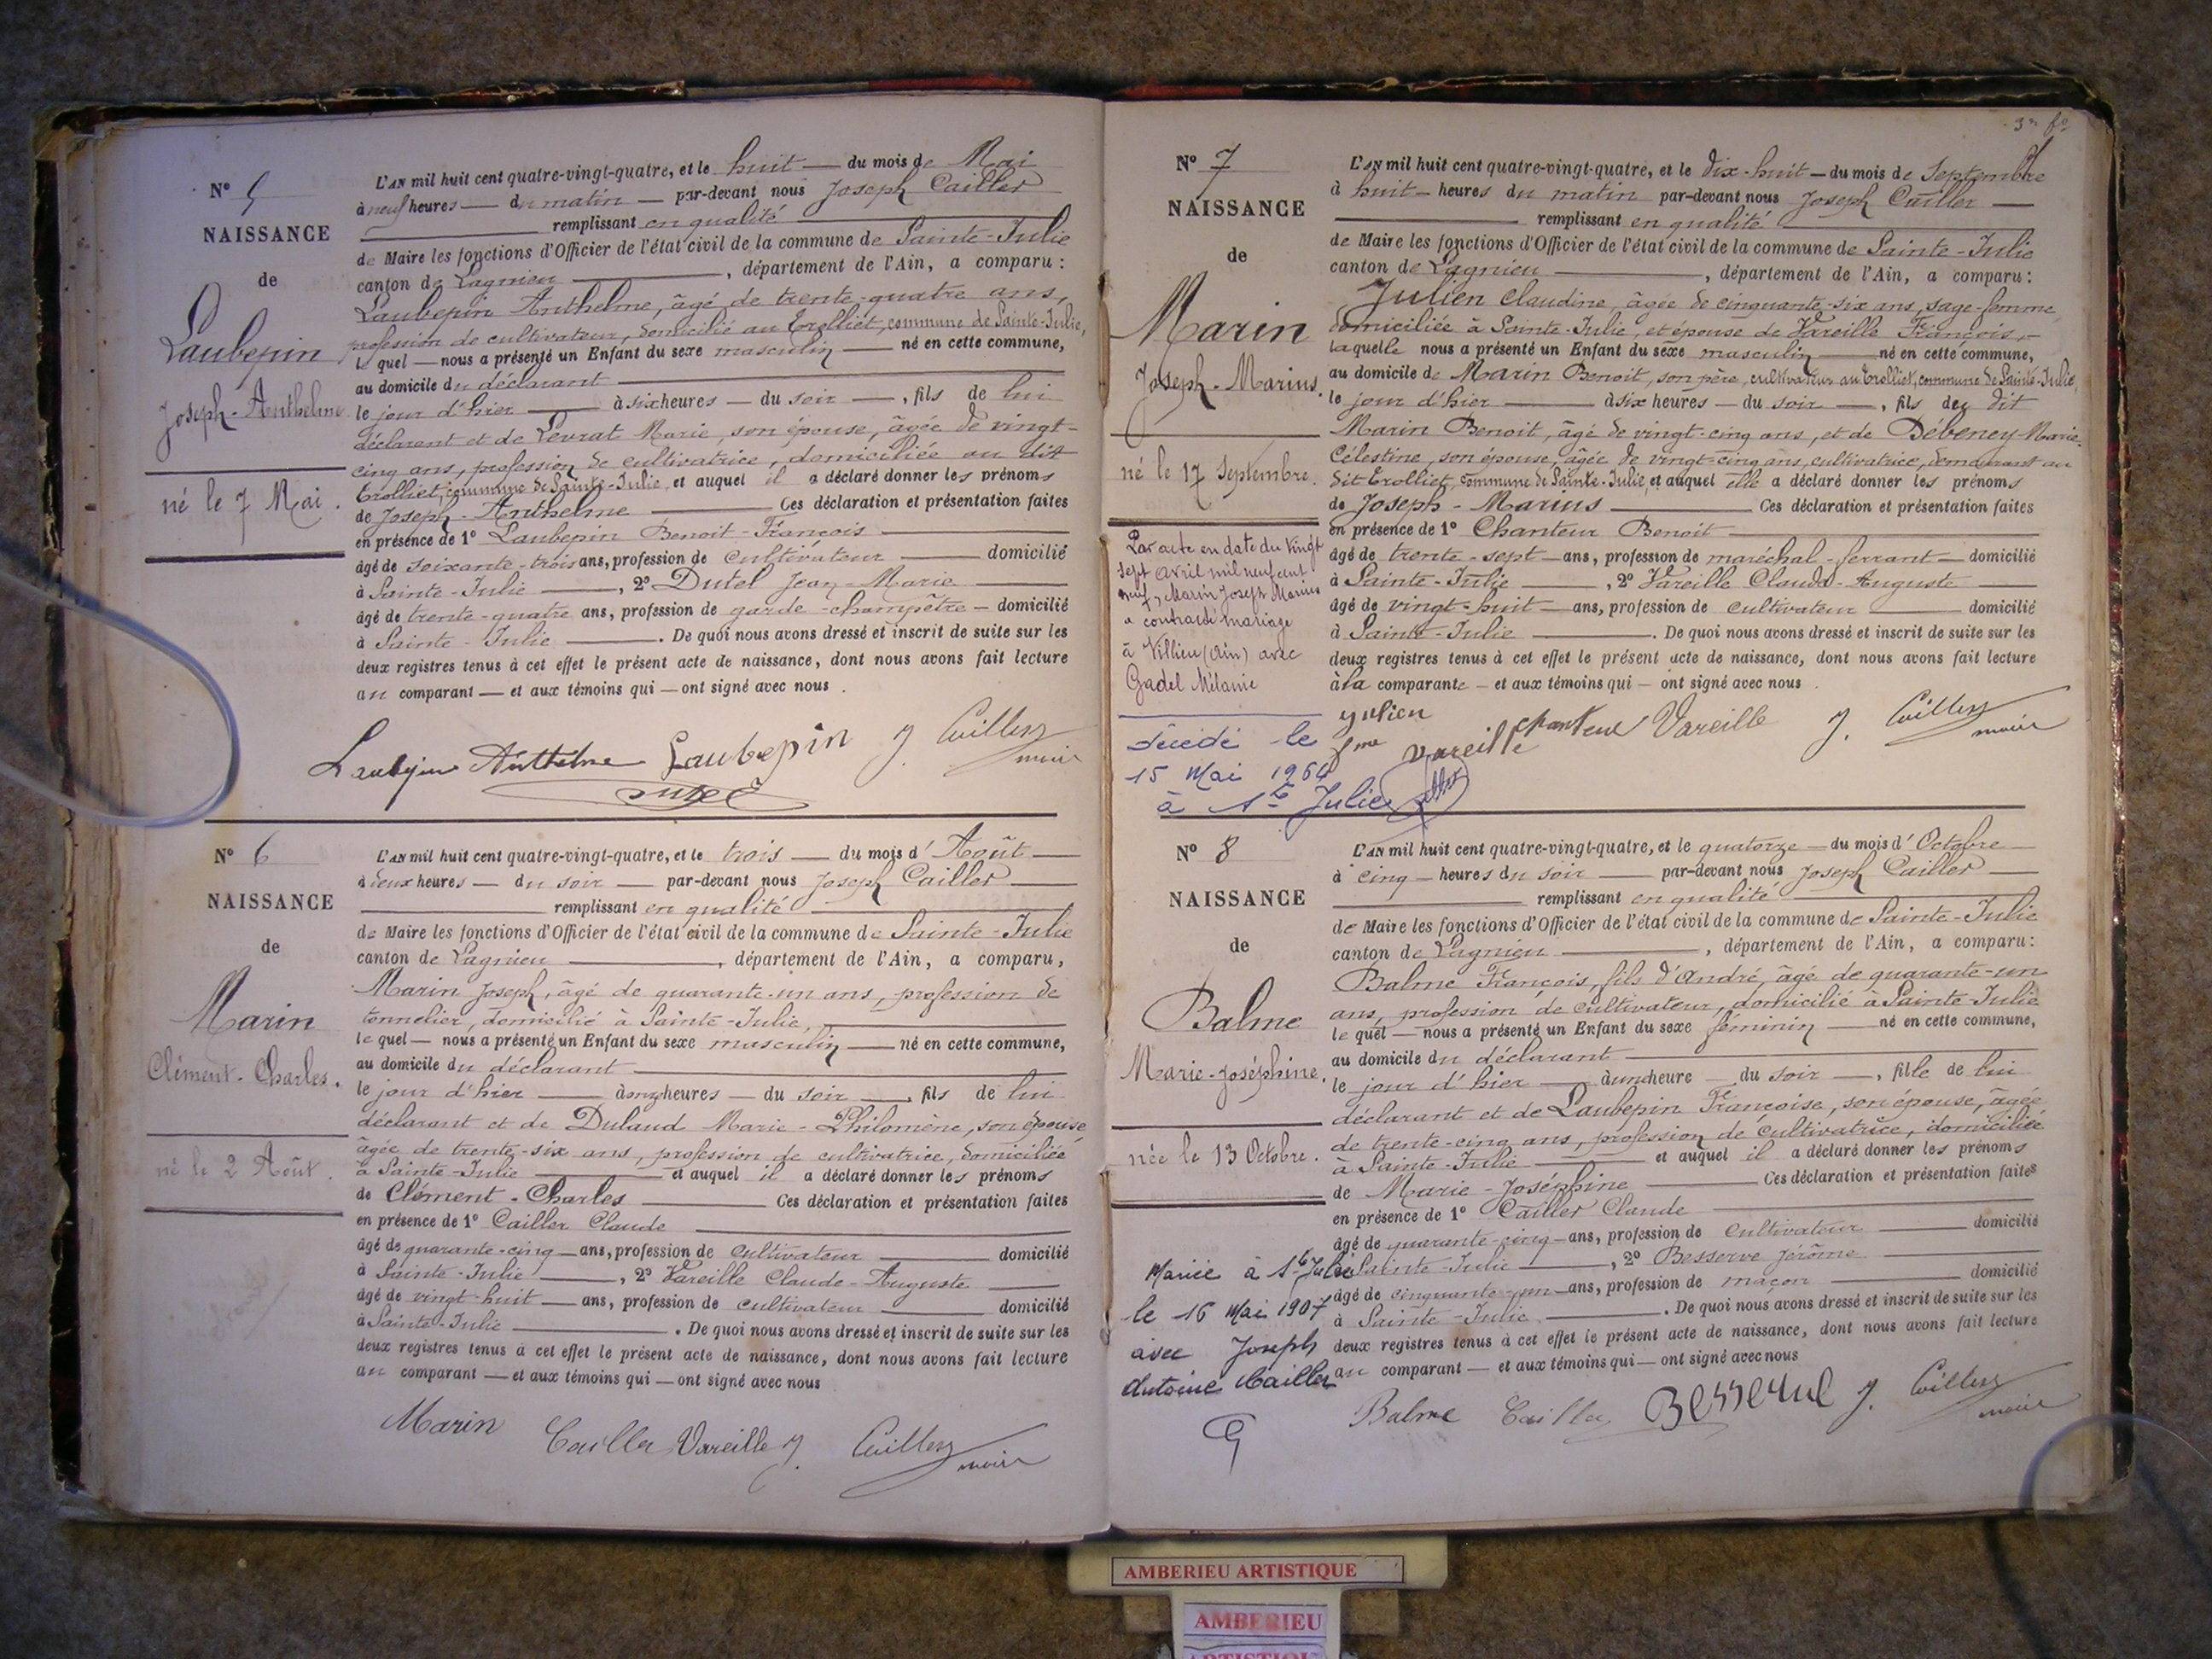 N° 5
NAISSANCE
de
Laubepin
Joseph-Anthelme
né le 7 Mai.
L'AN mil huit cent quatre-vingt-quatre, et le huit — du mois de Mai
à neuf heures — du matin — par-devant nous Joseph Cailler
remplissant en qualité
de Maire les fonctions d'Officier de l'état civil de la commune de Sainte-Julie
canton de Lagnieu —, département de l'Ain, a comparu :
Laubepin Anthelme, âgé de trente-quatre ans,
profession de cultivateur, domicilié au Trolliet, commune de Sainte-Julie,
le quel — nous a présenté un Enfant du sexe masculin — né en cette commune,
au domicile du déclarant
le jour d'hier — à six heures — du soir —, fils de lui
déclarant et de Levrat Marie, son épouse, âgée de vingt-
cinq ans, profession de cultivatrice, domiciliée au dit
Trolliet, commune de Sainte-Julie, et auquel il a déclaré donner les prénoms
de Joseph-Anthelme — Ces déclaration et présentation faites
en présence de 1° Laubepin Benoit-François
âgé de soixante-trois ans, profession de cultivateur — domicilié
à Sainte-Julie —, 2° Dutel Jean-Marie
âgé de trente-quatre ans, profession de garde-champêtre — domicilié
à Sainte-Julie —. De quoi nous avons dressé et inscrit de suite sur les
deux registres tenus à cet effet le présent acte de naissance, dont nous avons fait lecture
au comparant — et aux témoins qui — ont signé avec nous.
Laubepin Anthelme Laubepin J. Cailler
maire
Dutel
N° 6
NAISSANCE
de
Marin
Clément-Charles.
né le 2 Août.
L'AN mil huit cent quatre-vingt-quatre, et le trois — du mois d'Août —
à deux heures — du soir — par-devant nous Joseph Cailler
remplissant en qualité
de Maire les fonctions d'Officier de l'état civil de la commune de Sainte-Julie
canton de Lagnieu —, département de l'Ain, a comparu,
Marin Joseph, âgé de quarante-un ans, profession de
tonnelier, domicilié à Sainte-Julie,
le quel — nous a présenté un Enfant du sexe masculin — né en cette commune,
au domicile du déclarant
le jour d'hier — à onze heures — du soir —, fils de lui
déclarant et de Dulaud Marie-Philomène, son épouse
âgée de trente-six ans, profession de cultivatrice, domiciliée
à Sainte-Julie — et auquel il a déclaré donner les prénoms
de Clément-Charles — Ces déclaration et présentation faites
en présence de 1° Cailler Claude
âgé de quarante-cinq — ans, profession de cultivateur — domicilié
à Sainte-Julie —, 2° Vareille Claude-Auguste
âgé de vingt-huit — ans, profession de cultivateur — domicilié
à Sainte-Julie —. De quoi nous avons dressé et inscrit de suite sur les
deux registres tenus à cet effet le présent acte de naissance, dont nous avons fait lecture
au comparant — et aux témoins qui — ont signé avec nous
Marin Cailler Vareille J. Cailler
maire
3e fo
N° 7
NAISSANCE
de
Marin
Joseph-Marius.
né le 17 Septembre.
Par acte en date du vingt
sept avril mil neuf cent
neuf, Marin Joseph Marius
a contracté mariage
à Villieu (Ain) avec
Gadel Mélanie
décédé le
15 Mai 1964
à Ste Julie
L'AN mil huit cent quatre-vingt-quatre, et le dix-huit — du mois de Septembre
à huit — heures du matin par-devant nous Joseph Cailler —
remplissant en qualité
de Maire les fonctions d'Officier de l'état civil de la commune de Sainte-Julie
canton de Lagnieu —, département de l'Ain, a comparu :
Julien Claudine, âgée de cinquante-six ans, sage-femme,
domiciliée à Sainte-Julie, et épouse de Vareille François,
laquelle nous a présenté un Enfant du sexe masculin — né en cette commune,
au domicile de Marin Benoit, son père, cultivateur au Trolliet, commune de Sainte-Julie,
le jour d'hier — à six heures — du soir —, fils du dit
Marin Benoit, âgé de vingt-cinq ans, et de Débeney Marie-
Célestine, son épouse, âgée de vingt-cinq ans, cultivatrice, demeurant au
dit Trolliet, commune de Sainte-Julie, et auquel elle a déclaré donner les prénoms
de Joseph-Marius — Ces déclaration et présentation faites
en présence de 1° Chanteur Benoit
âgé de trente-sept — ans, profession de maréchal-ferrant — domicilié
à Sainte-Julie —, 2° Vareille Claude-Auguste
âgé de vingt-huit — ans, profession de cultivateur — domicilié
à Sainte-Julie —. De quoi nous avons dressé et inscrit de suite sur les
deux registres tenus à cet effet le présent acte de naissance, dont nous avons fait lecture
à la comparante — et aux témoins qui — ont signé avec nous.
Julien
fme Vareille Chanteur Vareille J. Cailler
maire
N° 8
NAISSANCE
de
Balme
Marie-Joséphine.
née le 13 Octobre.
Mariée à Ste Julie
le 16 Mai 1907
avec Joseph
Antoine Cailler
L'AN mil huit cent quatre-vingt-quatre, et le quatorze — du mois d'Octobre
à cinq — heures du soir — par-devant nous Joseph Cailler —
remplissant en qualité
de Maire les fonctions d'Officier de l'état civil de la commune de Sainte-Julie
canton de Lagnieu —, département de l'Ain, a comparu :
Balme François, fils d'André, âgé de quarante-un
ans, profession de cultivateur, domicilié à Sainte-Julie
le quel — nous a présenté un Enfant du sexe féminin — né en cette commune,
au domicile du déclarant
le jour d'hier — à une heure — du soir —, fille de lui
déclarant et de Laubepin Françoise, son épouse, âgée
de trente-cinq ans, profession de cultivatrice, domiciliée
à Sainte-Julie — et auquel il a déclaré donner les prénoms
de Marie-Joséphine — Ces déclaration et présentation faites
en présence de 1° Cailler Claude
âgé de quarante-cinq — ans, profession de cultivateur — domicilié
à Sainte-Julie —, 2° Besserve Jérôme
âgé de cinquante-un — ans, profession de maçon — domicilié
à Sainte-Julie —. De quoi nous avons dressé et inscrit de suite sur les
deux registres tenus à cet effet le présent acte de naissance, dont nous avons fait lecture
au comparant — et aux témoins qui — ont signé avec nous
Balme Cailler Besserve J. Cailler
maire
AMBERIEU ARTISTIQUE
AMBERIEU
ARTISTIQUE